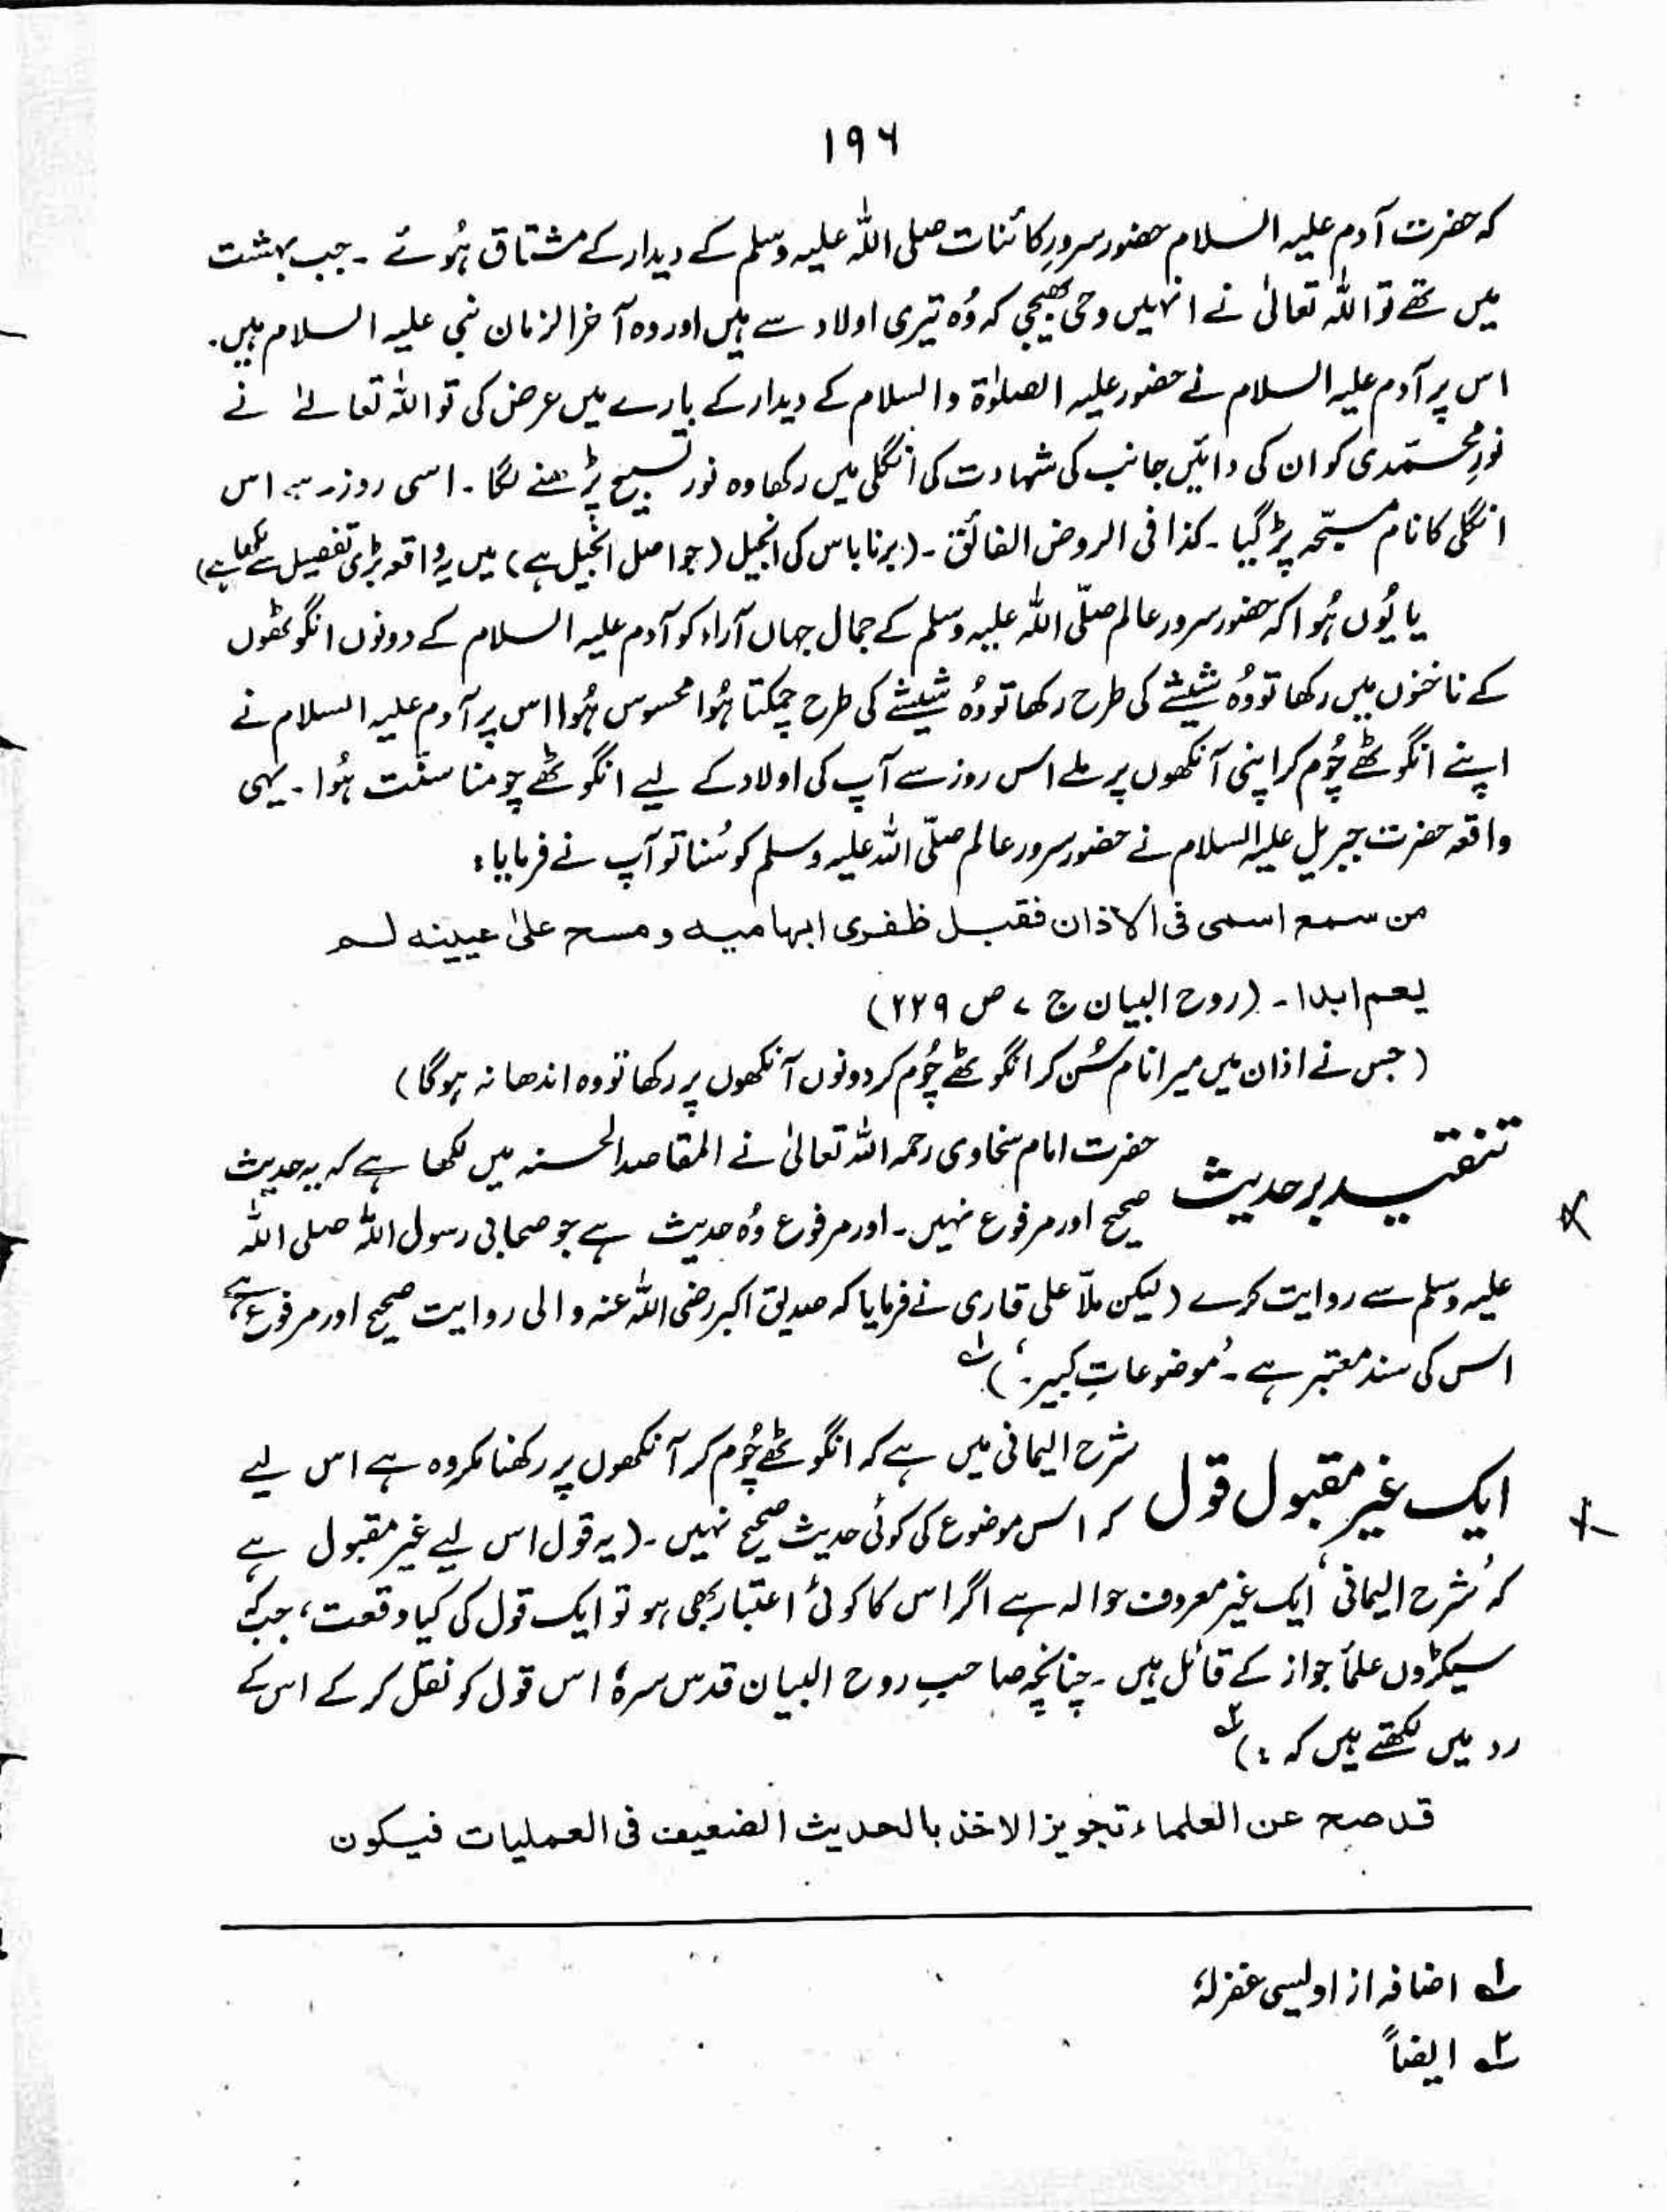 ۱۹۶
کہ حضرت آدم علیہ السلام حضور سرورِ کائنات صلی اللہ علیہ وسلم کے دیدار کے مشتاق ہُوئے ۔ جب بہشت
میں تھے تو اللہ تعالیٰ نے انہیں وحی بھیجی کہ وُہ تیری اولاد سے ہیں اور وہ آخر الزمان نبی علیہ السلام ہیں۔
اس پر آدم علیہ السلام نے حضور علیہ الصلوٰۃ والسلام کے دیدار کے بارے میں عرض کی تو اللہ تعالےٰ نے
نورِ محمّدی کو ان کی دائیں جانب کی شہادت کی انگلی میں رکھا وہ نور تسبیح پڑھنے لگا ۔ اسی روز سے اس
انگلی کا نام مسبّحہ پڑ گیا ۔ کذا فی الروض الفائق ۔ (برناباس کی انجیل (جو اصل انجیل ہے) میں یہ واقعہ بڑی تفصیل سے لکھا ہے)
یا یُوں ہُوا کہ حضور سرور عالم صلّی اللہ علیہ وسلم کے جمال جہاں آراء کو آدم علیہ السلام کے دونوں انگوٹھوں
کے ناخنوں میں رکھا تو وُہ شیشے کی طرح رکھا تو وُہ شیشے کی طرح چمکتا ہُوا محسوس ہُوا اس پر آدم علیہ السلام نے
اپنے انگوٹھے چُوم کر اپنی آنکھوں پر ملے اس روز سے آپ کی اولاد کے لیے انگوٹھے چومنا سنّت ہُوا ۔ یہی
واقعہ حضرت جبریل علیہ السلام نے حضور سرور عالم صلّی اللہ علیہ وسلم کو سُنا تو آپ نے فرمایا :
من سمع اسمی فی الاذان فقبل ظفری ابہامیہ و مسح علیٰ عیینہ لم
یعم ابدا ۔ (روح البیان ج ۷ ص ۲۲۹)
(جس نے اذان میں میرا نام سُن کر انگوٹھے چُوم کر دونوں آنکھوں پر رکھا تو وہ اندھا نہ ہوگا)
تنقید بر حدیث حضرت امام سخاوی رحمہ اللہ تعالیٰ نے المقاصد الحسنہ میں لکھا ہے کہ یہ حدیث
صحیح اور مرفوع نہیں ۔ اور مرفوع وُہ حدیث ہے جو صحابی رسول اللہ صلی اللہ
علیہ وسلم سے روایت کرے (لیکن ملّا علی قاری نے فرمایا کہ صدیق اکبر رضی اللہ عنہ والی روایت صحیح اور مرفوع ہے،
اس کی سند معتبر ہے ۔ 'موضوعاتِ کبیر'۔) ؂۱
ایک غیر مقبول قول شرح الیمانی میں ہے کہ انگوٹھے چُوم کر آنکھوں پر رکھنا مکروہ ہے اس لیے
کہ اس موضوع کی کوئی حدیث صحیح نہیں ۔ (یہ قول اس لیے غیر مقبول ہے
کہ 'شرح الیمانی' ایک غیر معروف حوالہ ہے اگر اس کا کوئی اعتبار بھی ہو تو ایک قول کی کیا وقعت، جبکہ
سیکڑوں علمأ جواز کے قائل ہیں ۔ چنانچہ صاحبِ روح البیان قدس سرہٗ اس قول کو نقل کر کے اس کے
رد میں لکھتے ہیں کہ :) ؂۲
قد صح عن العلماء تجویز الاخذ بالحدیث الضعیف فی العملیات فیکون
؂۱ اضافہ از اویسی غفرلہٗ
؂۲ ایضاً